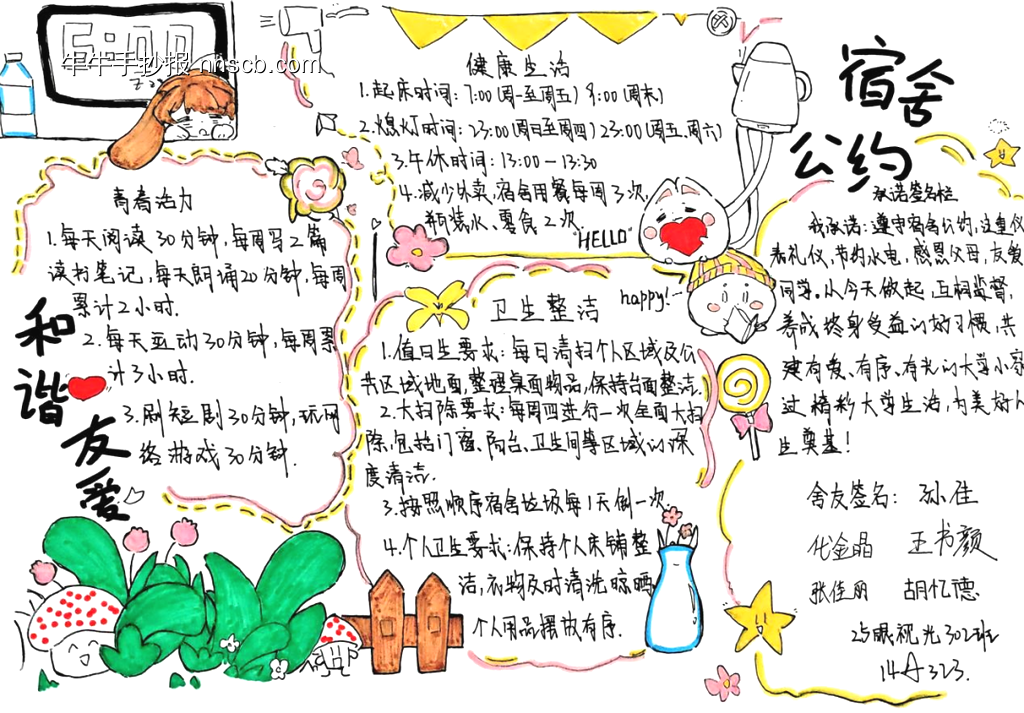 6:00
牛牛手抄报 nhscb.com
宿舍
公约
健康生活
1.起床时间:7:00(周一至周五) 8:00(周末)
2.熄灯时间:23:00(周日至周四) 23:00(周五、周六)
3.午休时间:13:00-13:30
4.减少外卖,宿舍用餐每周3次,
瓶装水、零食2次.
HELLO
happy!
青春活力
1.每天阅读30分钟,每周写2篇
读书笔记,每天朗诵20分钟,每周
累计2小时.
2.每天运动30分钟,每周累
计3小时.
3.刷短剧30分钟,玩网
络游戏30分钟.
和谐友爱
卫生整洁
1.值日生要求:每日清扫个人区域及公
共区域地面,整理桌面物品,保持台面整洁.
2.大扫除要求:每周四进行一次全面大扫
除,包括门窗、阳台、卫生间等区域的深
度清洁.
3.按照顺序宿舍垃圾每1天倒一次
4.个人卫生要求:保持个人床铺整
洁,衣物及时清洗晾晒
个人用品摆放有序.
承诺签名栏
我承诺:遵守宿舍公约,注重仪
表礼仪,节约水电,感恩父母,友爱
同学。从今天做起,互相监督,
养成终身受益的好习惯,共
建有爱、有序、有光的大学小家
过精彩大学生活,为美好人
生奠基!
舍友签名: 孙佳
化金晶 王书颜
张佳丽 胡忆德
25眼视光302班
14-A323.